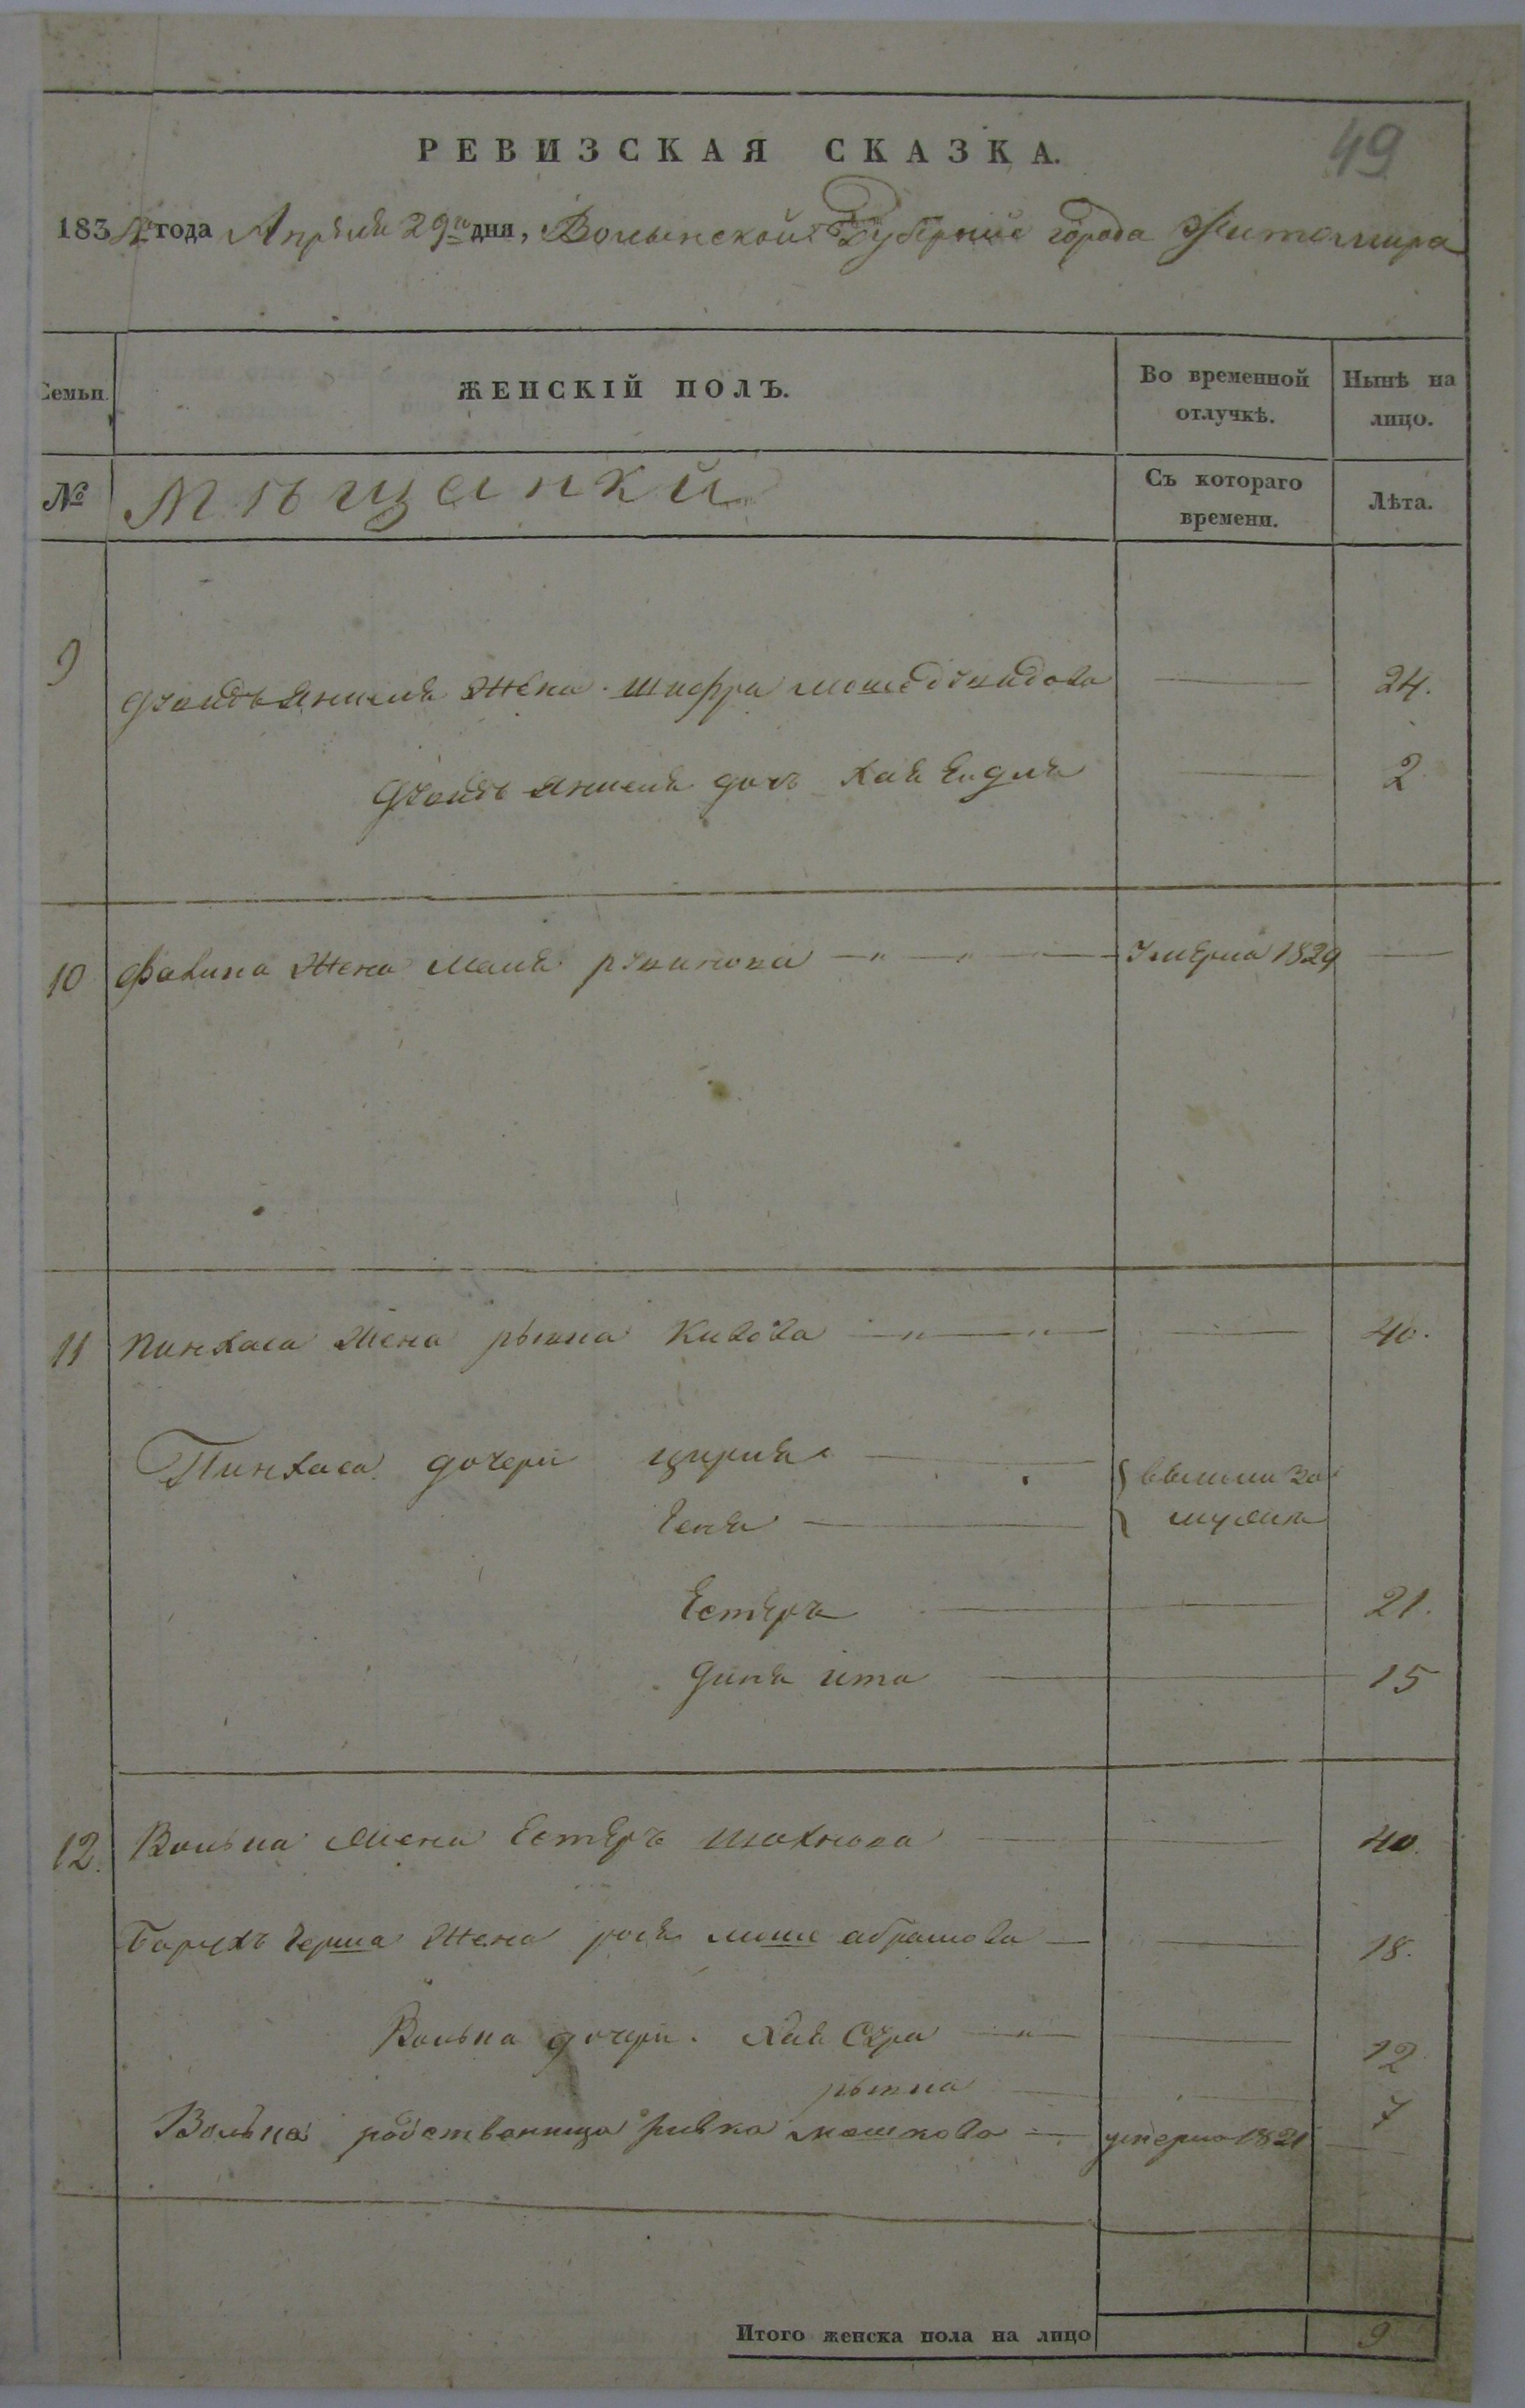 49
РЕВИЗСКАЯ СКАЗКА.
1834 года Апреля 29го дня, Волынской Губернии города Житомира
Семьи. ЖЕНСКІЙ ПОЛЪ. Во временной отлучкѣ. Нынѣ на лицо.
№ Мѣщанки Съ котораго времени. Лѣта.
9 Янкеля жена Шифра 24.
Янкеля дочь Хая Ейдля 2
10 Фавиша жена Маля Умерла 1829
11 Пинхаса жена рыкла Кивова 40.
Пинхаса дочери цирля
геня } вышли за мужъ
Естеръ 21.
Диня ита 15
12. Вольпа жена Естеръ шахнова 40.
Барухъ герша жена рося абрамова 18.
Вольпа дочери Хая Сура 12
7
Вольпа родственница ривка мошкова умерла 1821
Итого женска пола на лицо 9